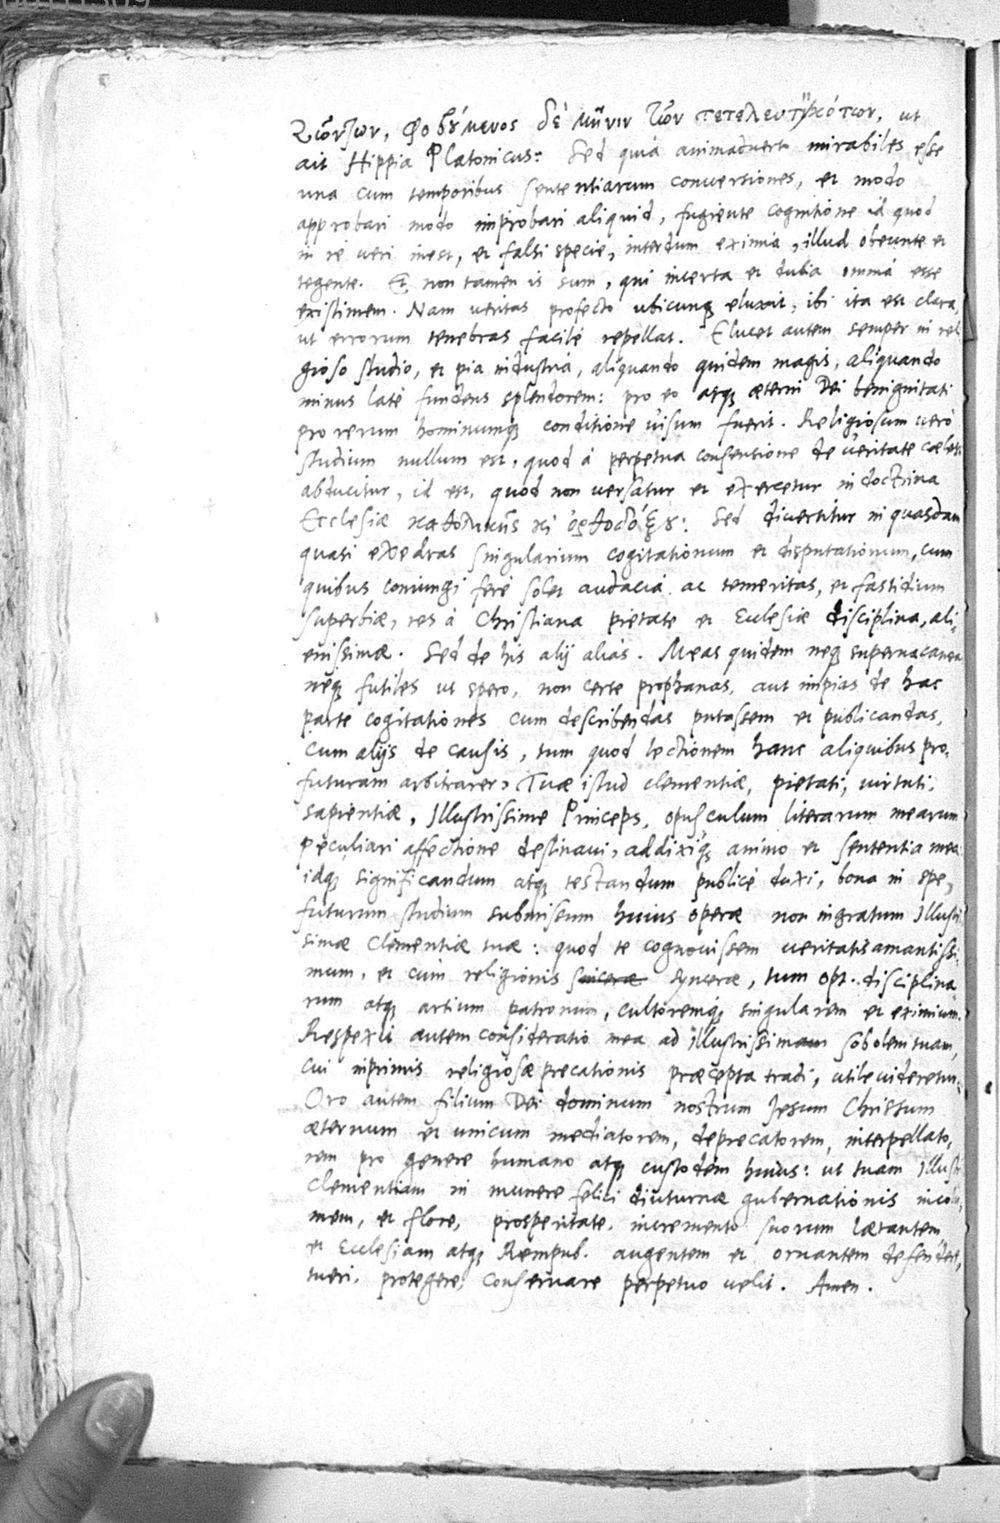 ζώντων, φοβούμενος δὲ μῆνιν τῶν τετελευτηκότων, ut
ait Hippia Platonicus: Sed quia animaduerto mirabiles esse
una cum temporibus sententiarum conuersiones, et modo
approbari modo improbari aliquid, fugiente cognitione id quod
in re ueri inest, et falsi specie, interdum eximia, illud obeunte et
tegente. Et non tamen is sum, qui incerta et dubia omnia esse
existimem. Nam ueritas profecto ubicunq eluxit, ibi ita est clara,
ut errorum tenebras facilè repellat. Elucet autem semper in reli
gioso studio, et pia industria, aliquando quidem magis, aliquando
minus latè fundens splendorem: pro eo atq æterni Dei benignitati
pro rerum hominumq conditione uisum fuerit. Religiosum uerò
studium nullum est, quod à perpetua consensione de ueritate cælesti
abducitur, id est, quod non uersatur et exercetur in doctrina
Ecclesiæ καθολικῆς κὶ ὀρθοδόξου: Sed diuertitur in quasdam
quasi exedras singularium cogitationum et disputationum, cum
quibus coniungi ferè solet audacia ac temeritas, et fastidium
superbiæ, res à Christiana pietate et Ecclesiæ disciplina, ali,
enissimæ. Sed de his alij aliàs. Meas quidem neq superuacaneas
neq futiles ut spero, non certe prophanas, aut impias de hac
parte cogitationes cum describendas putassem et publicandas,
Cum alijs de causis, tum quod lectionem hanc aliquibus pro,
futuram arbitrarer, Tuæ istud clementiæ, pietati, uirtuti,
sapientiæ, Illustrissime Princeps, opusculum literarum mearum
peculiari affectione destinaui, addixiq animo et sententia mea
idq significandum atq testandum publicè duxi, bona in spe,
futurum studium submissum huius operæ non ingratum Illustris
simæ Clementiæ tuæ: quod te cognouissem ueritatis amantissi,
mum, et cum religionis sinceræ synceræ, tum opt. disciplina
rum atq artium patronum, cultoremq singularem et eximium.
Respexit autem consideratio mea ad illustrissimam sobolem tuam,
cui inprimis religiosæ precationis præcepta tradi, utile uideretur.
Oro autem filium Dei dominum nostrum Jesum Christum
æternum et unicum mediatorem, deprecatorem, interpellato,
rem pro genere humano atq custodem huius: ut tuam Illustr
Clementiam in munere felici diuturnæ gubernationis incolu,
mem, et flore, prosperitate, incremento suorum lætantem
et Ecclesiam atq Rempub. augentem et ornantem defendere,
tueri, protegere, conseruare perpetuo uelit. Amen.